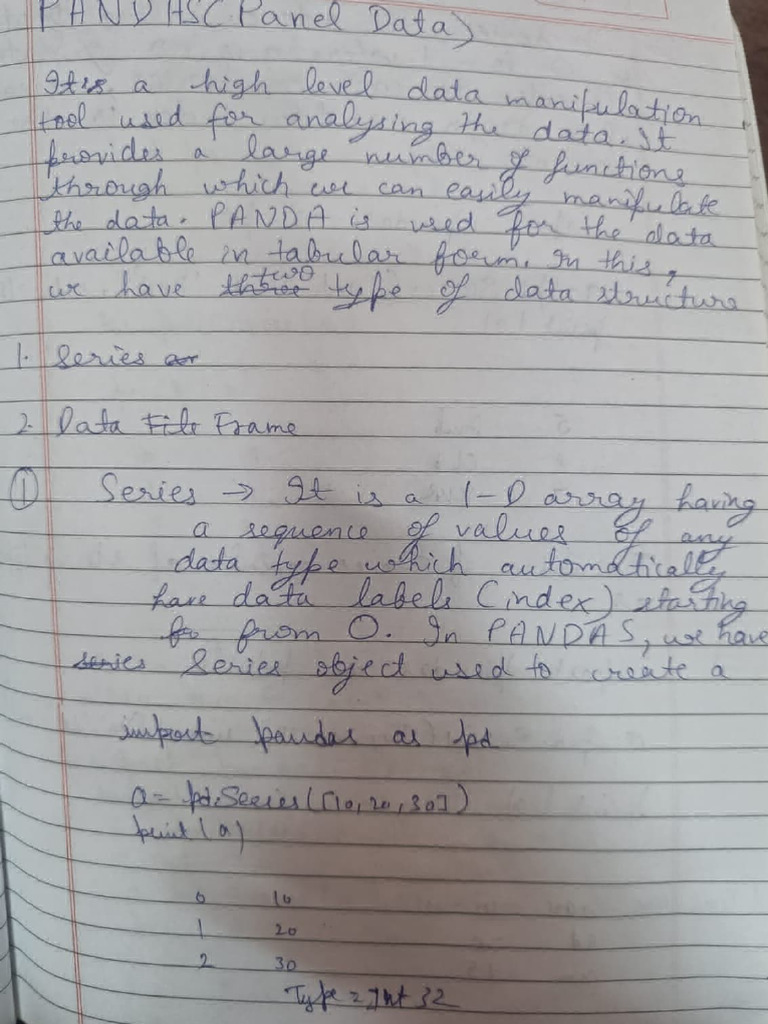 PANDAS(Panel Data)
It is a high level data manipulation
tool used for analysing the data. It
provides a large number of functions
through which we can easily manipulate
the data. PANDA is used for the data
available in tabular form. In this,
two
we have three type of data structure
1. Series or
2. Data File Frame
① Series → It is a 1-D array having
a sequence of values of any
data type which automatically
have data labels (index) starting
fo from 0. In PANDAS, we have
series Series object used to create a
import pandas as pd
a= pd.Series([10,20,30])
print(a)
0 10
1 20
2 30
Type = Int 32